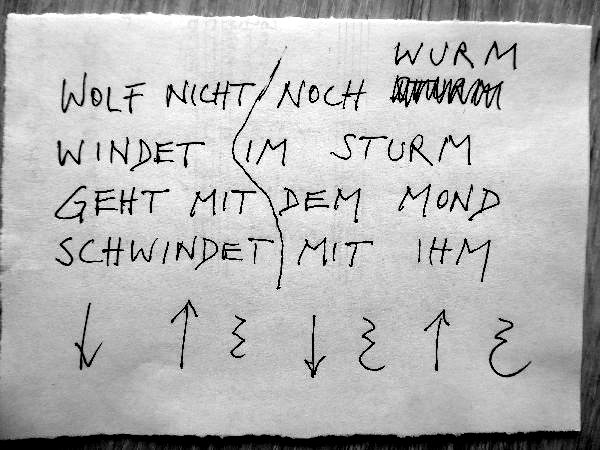 WURM
WOLF NICHT NOCH
WINDET IM STURM
GEHT MIT DEM MOND
SCHWINDET MIT IHM